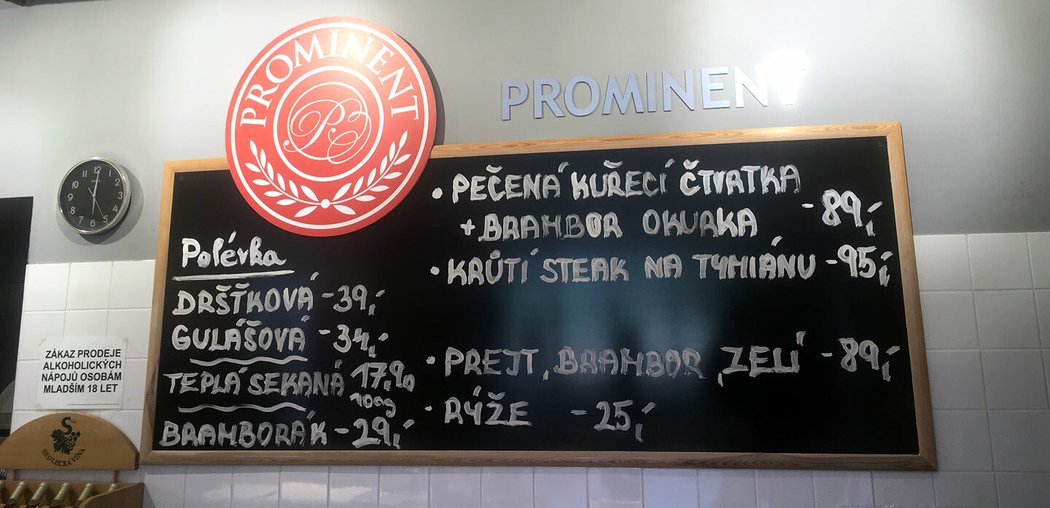 PROMINENT
PE
PROMINENT
Polévka
DRŠŤKOVÁ -39,-
GULÁŠOVÁ -34,-
TEPLÁ SEKANÁ 17,90
100g
BRAMBORÁK -29,-
• PEČENÁ KUŘECÍ ČTVRTKA
+ BRAMBOR OKURKA -89,-
• KRŮTÍ STEAK NA TYMIÁNU -95,-
• PREJT, BRAMBOR, ZELÍ -89,-
• RÝŽE -25,-
ZÁKAZ PRODEJE
ALKOHOLICKÝCH
NÁPOJŮ OSOBÁM
MLADŠÍM 18 LET
S
SEDLECKÁ VÍNA